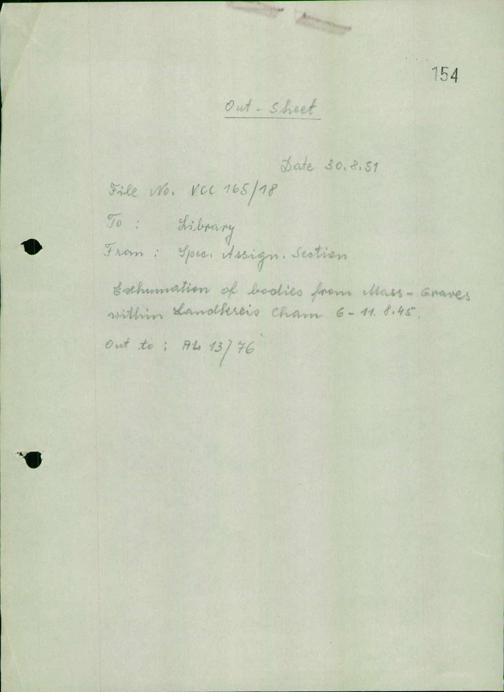 154
Out - Sheet
Date 30.8.51
File No. VCC 165/18
To : Library
From : Spec. Assign. Section
Exhumation of bodies from Mass - Graves
within Landkreis Cham 6 - 11.8.45.
Out to : 13/76